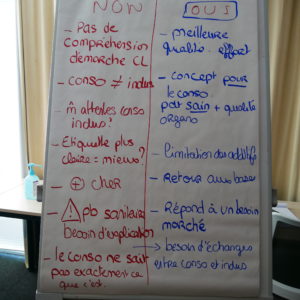 NON
- Pas de
compréhension
démarche CL
- conso ≠ indus
- m̂ attentes conso
indus?
- Etiquette plus
claire = mieux?
- ⊕ cher
- ⚠ pb sanitaire
besoin d'explication
- le conso ne sait
pas exactement ce
que c'est.
OUI
- meilleure
qualité. effort
- concept pour
le conso
pdt sain + qualité
organo
- limitation des additifs
- Retour aux bases
- Répond à un besoin
marché
→ besoin d'échanges
entre conso et indus